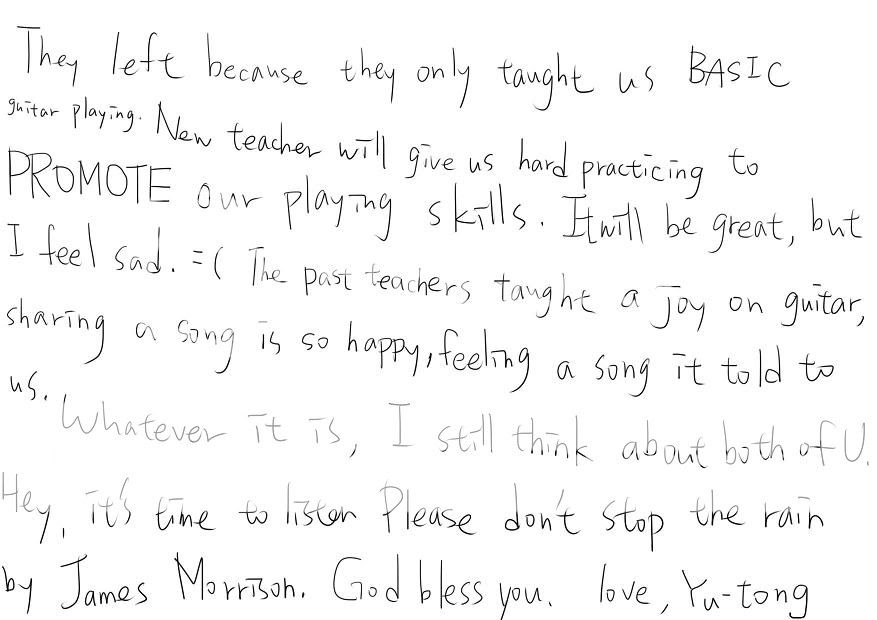 They left because they only taught us BASIC
guitar playing. New teacher will give us hard practicing to
PROMOTE our playing skills. It will be great, but
I feel sad. =( The past teachers taught a joy on guitar,
sharing a song is so happy, feeling a song it told to
us. Whatever it is, I still think about both of U.
Hey, it's time to listen Please don't stop the rain
by James Morrison. God bless you. love, Yu-tong